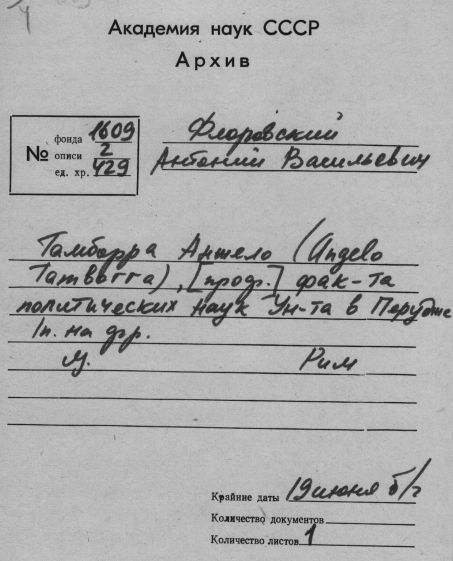 Академия наук СССР
Архив
№
фонда 1609
описи 2
ед. хр. 429
Флоровский
Антоний Васильевич
Тамборра Анжело (Angelo
Tamborra), [проф.] фак-та
политических наук Ун-та в Перудже
1п. на фр.
м. Рим
Крайние даты 19 июня б/г
Количество документов
Количество листов 1